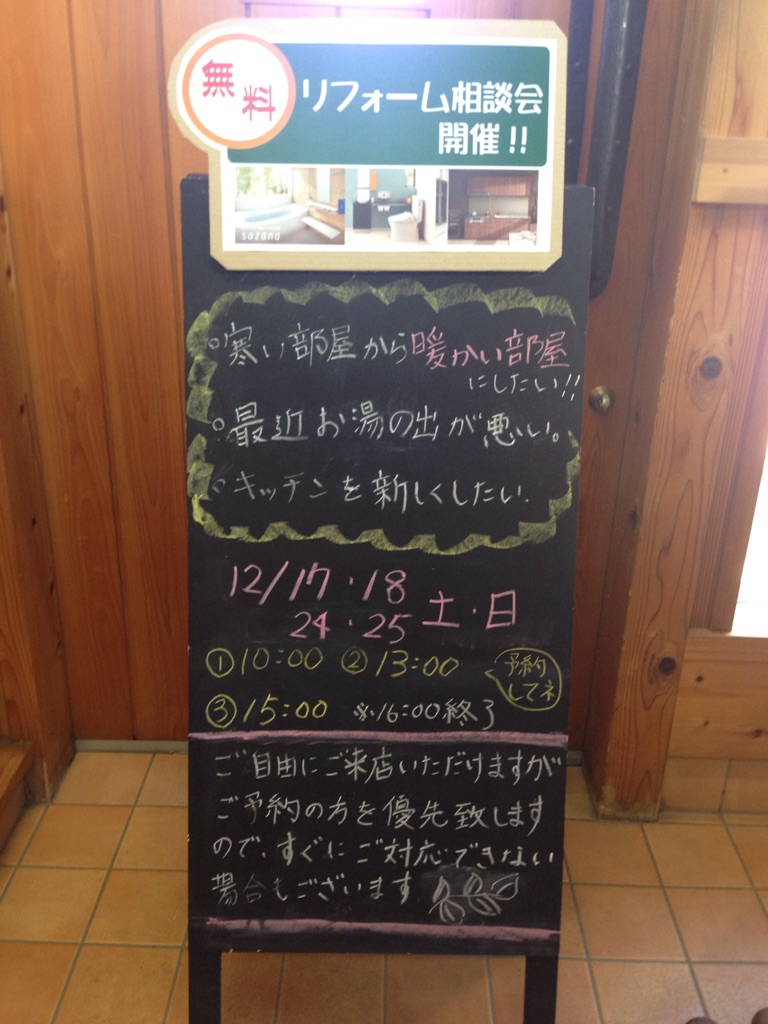 無料
リフォーム相談会
開催!!
sazana
◦寒い部屋から暖かい部屋
にしたい!!
◦最近お湯の出が悪い。
◦キッチンを新しくしたい.
12/17・18
24・25 土・日
①10:00 ②13:00
予約
してネ
③15:00 ※16:00終了
ご自由にご来店いただけますが
ご予約の方を優先致します
ので、すぐにご対応できない
場合もございます